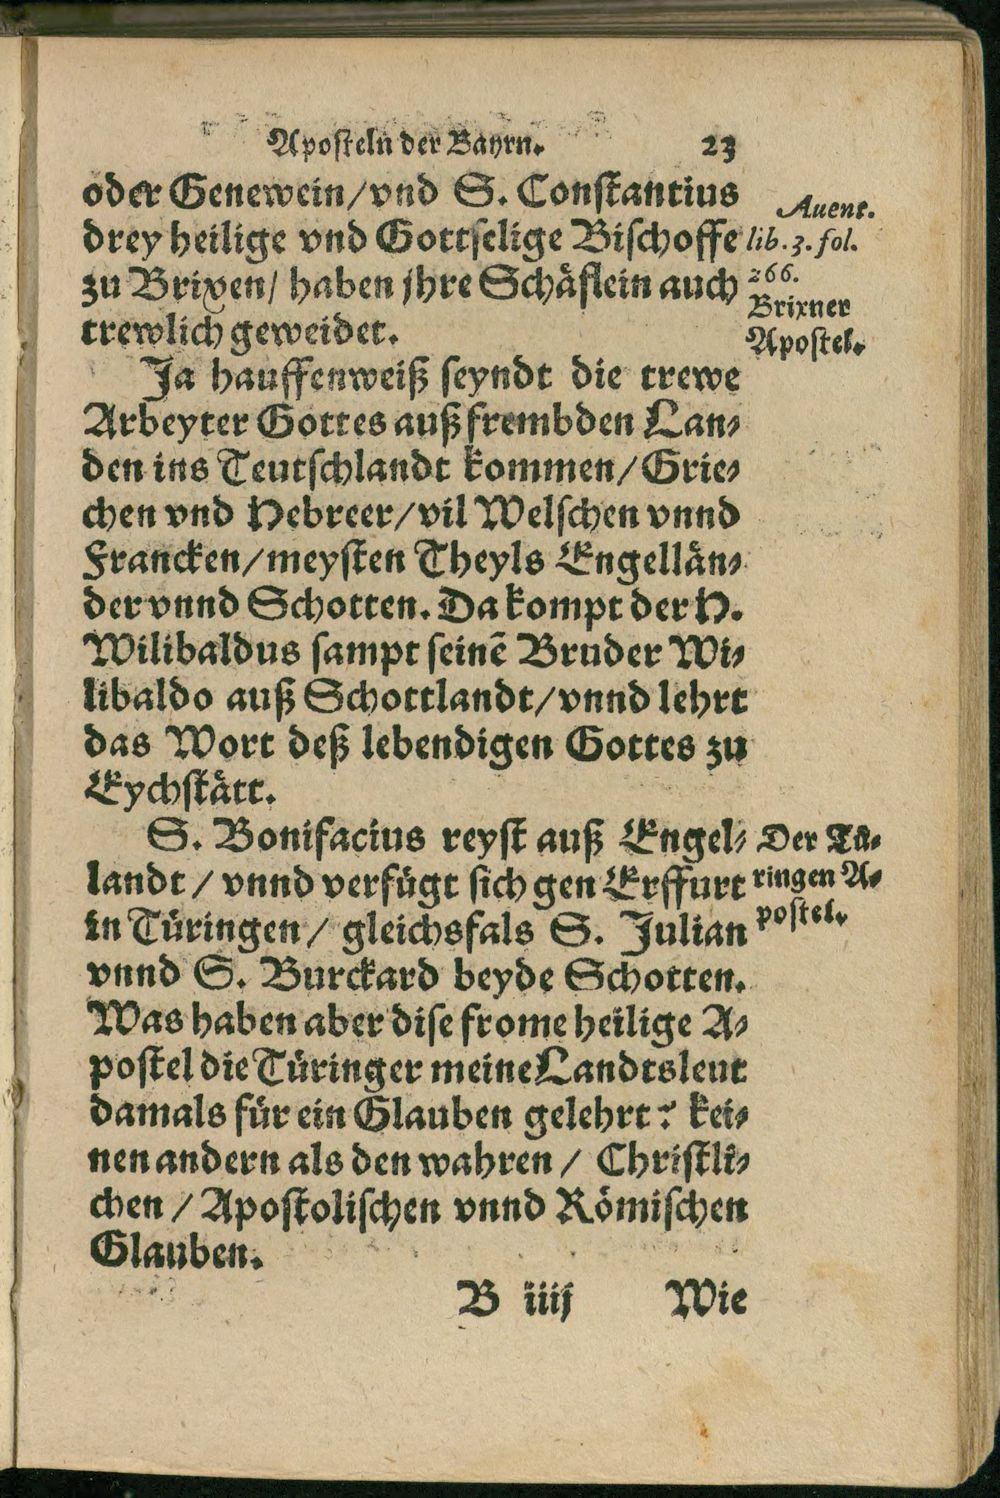 Aposteln der Bayrn. 23
oder Genewein/vnd S. Constantius
drey heilige vnd Gottselige Bischoffe
zu Brixen/ haben jhre Schäflein auch
trewlich geweidet.
Auent.
lib. 3. fol.
266.
Brixner
Apostel.
Ja hauffenweiß seyndt die trewe
Arbeyter Gottes auß frembden Lan-
den ins Teutschlandt kommen/Grie-
chen vnd Hebreer/vil Welschen vnnd
Francken/meysten Theyls Engellän-
der vnnd Schotten. Da kompt der H.
Wilibaldus sampt seinē Bruder Wi-
libaldo auß Schottlandt/vnnd lehrt
das Wort deß lebendigen Gottes zu
Eychstätt.
S. Bonifacius reyst auß Engel-
landt / vnnd verfügt sich gen Erffurt
in Türingen / gleichsfals S. Julian
vnnd S. Burckard beyde Schotten.
Was haben aber dise frome heilige A-
postel die Türinger meine Landtsleut
damals für ein Glauben gelehrt? kei-
nen andern als den wahren / Christli-
chen / Apostolischen vnnd Römischen
Glauben.
Der Tü-
ringen A-
postel.
B iiij Wie